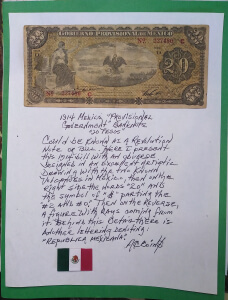 GOBIERNO PROVISIONAL DE MEXICO
20
1914 MEXICO "PROVISIONAL
GOVERNMENT" BANKNOTE
"20 PESOS"
COULD BE KNOWN AS A REVOLUTION
NOTE OR BILL. HERE I PRESENT
THIS BILL WITH AN OBVERSE
DESIGNED IN AN EXCELLENT ARTISTIC
DRAWING WITH THE
IN MEXICO, THEN ON THE
RIGHT SIDE THE WORDS "20" AND
THE SYMBOL OF "$" PARTING THE
#2 AND #0. THEN ON THE REVERSE,
A FIGURE WITH RAYS COMING FROM
IT. BEHIND THIS THERE IS
ANOTHER LETTERING READING:
"REPUBLICA MEXICANA".